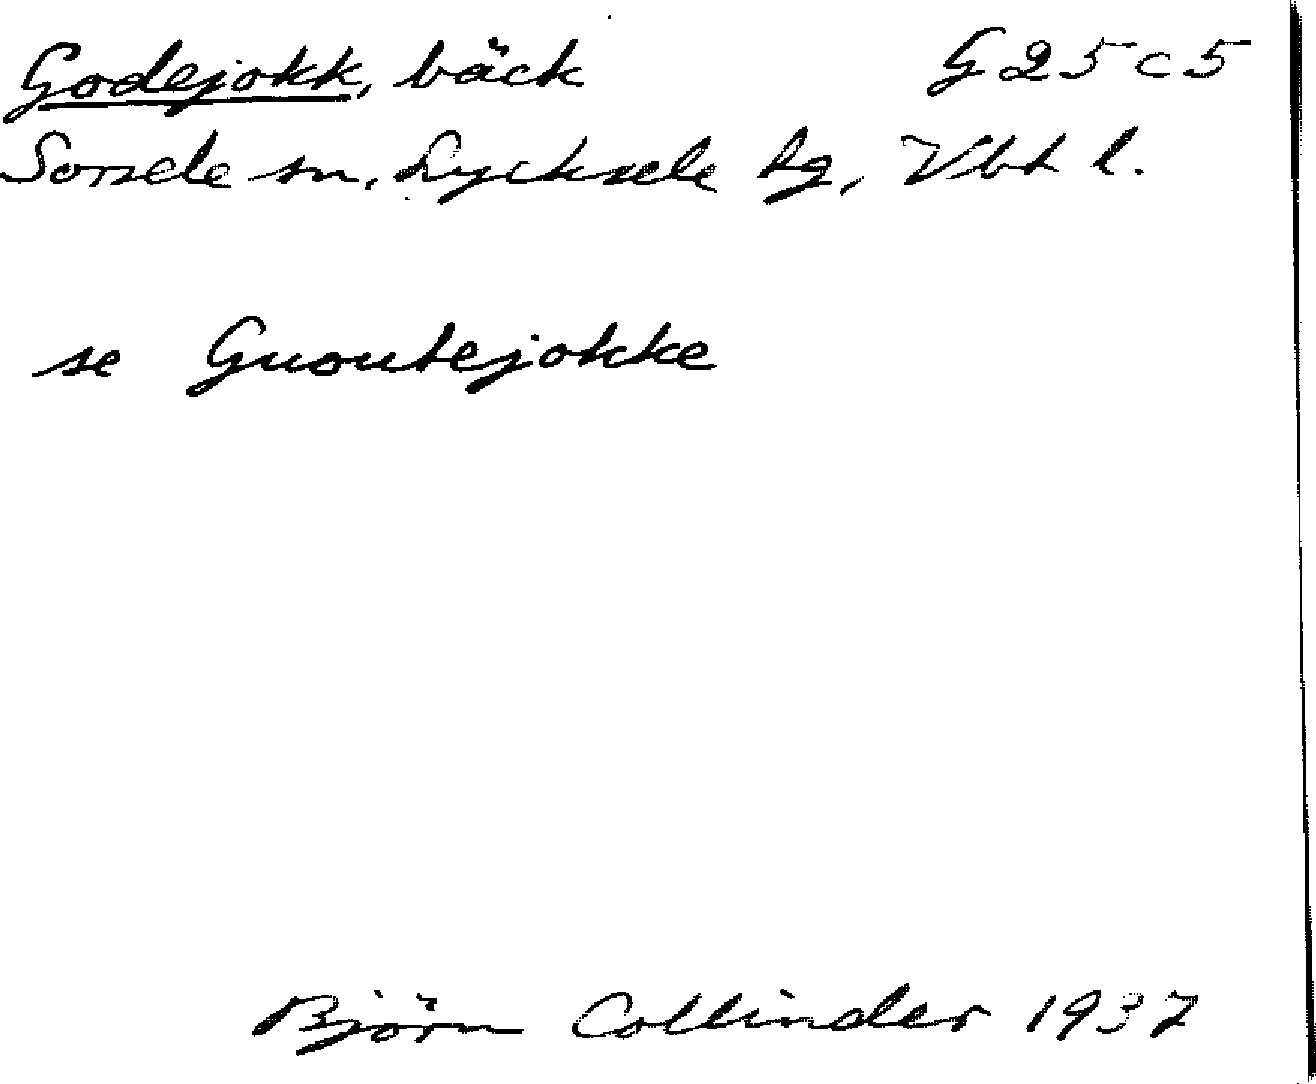 Godejokk, bäck G25c5
Sorsele sn. Lycksele lg, Vbt l.
se Guoutejokke
Björn Collinder 1937